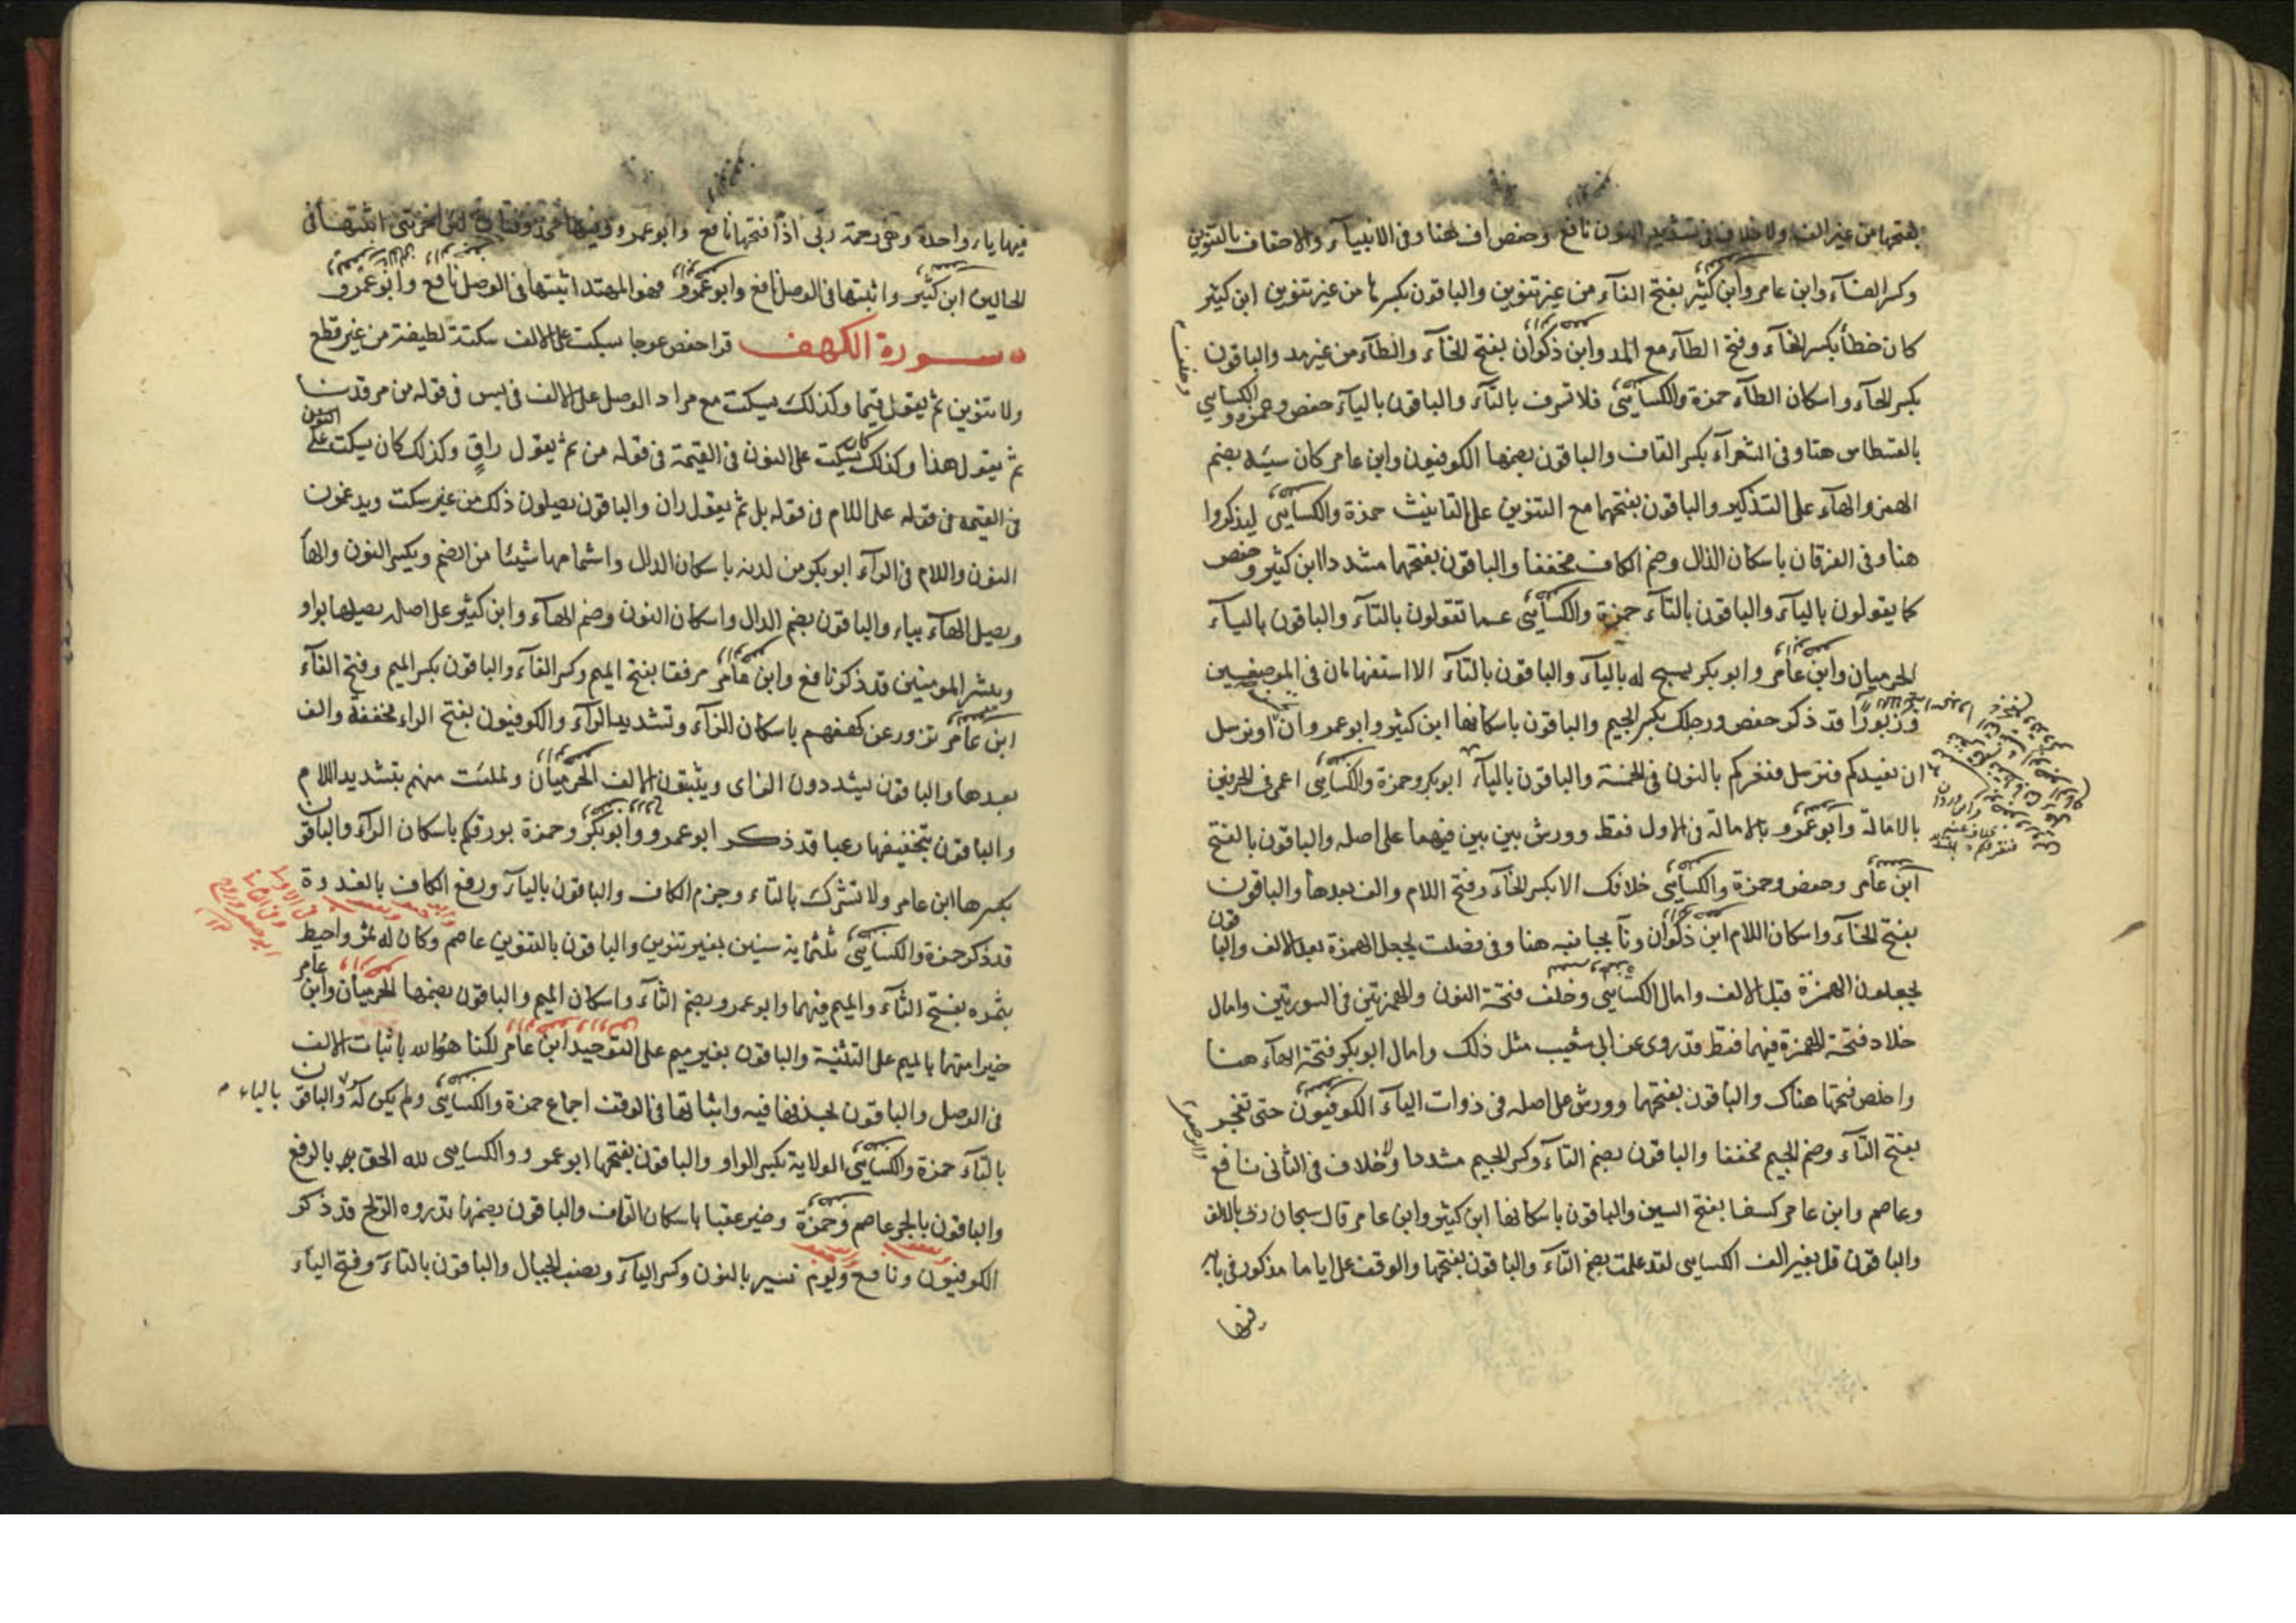 بفتحها من غير الف ولا خلاف فى تشديد النون نافع وحفص اف هنا وفى الانبيآء والاحقاف بالتنوين
وكسر الفآء وابن عامر وابن كثير بفتح الفآء من غير تنوين والباقون بكسرها من غير تنوين ابن كثير
كان خطأ بكسر الخآء وفتح الطآء مع المد وابن ذكوان بفتح الخآء والطآء من غير مد والباقون
بكسر الخآء واسكان الطآء حمزة والكسآئى فلا تسرف بالتآء والباقون باليآء حفص وحمزة والكسآئى
بالقسطاس هنا وفى الشعرآء بكسر القاف والباقون بضمها الكوفيون وابن عامر كان سيئه بضم
الهمز والهآء على التذكير والباقون بفتحهما مع التنوين على التانيث حمزة والكسآئى ليذكروا
هنا وفى الفرقان باسكان الذال وضم الكاف مخففا والباقون بفتحهما مشددا ابن كثير وحفص
كما يقولون باليآء والباقون بالتآء حمزة والكسآئى عما تقولون بالتآء والباقون باليآء
الحرميان وابن عامر وابو بكر يسبح له باليآء والباقون بالتآء الا استفهامان فى الموضعين
وزبورا قد ذكر حفص ورجلك بكسر الجيم والباقون باسكانها ابن كثير وابو عمرو ان او نرسل
ان نعيدكم فنرسل فنغرقكم بالنون فى الخمسة والباقون باليآء ابو بكر وحمزة والكسآئى اعمى فى الحرفين
بالامالة وابو عمرو بالامالة فى الاول فقط وورش بين بين فيهما على اصله والباقون بالفتح
ابن عامر وحفص وحمزة والكسآئى خلافك الا بكسر الخآء وفتح اللام والف بعدها والباقون
بفتح الخآء واسكان اللام ابن ذكوان ونآ بجانبه هنا وفى فصلت يجعل الهمزة بعد الالف والباقون
يجعلون الهمزة قبل الالف وامال الكسآئى وخلف فتحة النون والهمزتين فى السورتين وامال
خلاد فتحة الهمزة فيهما فقط وقد روى عن ابى شعيب مثل ذلك وامال ابو بكر فتحة الهآء هنا
واخلص فتحها هناك والباقون بفتحهما وورش على اصله فى ذوات اليآء الكوفيون حتى تفجر
بفتح التآء وضم الجيم مخففا والباقون بضم التآء وكسر الجيم مشددا ولا خلاف فى الثانى نافع
وعاصم وابن عامر كسفا بفتح السين والباقون باسكانها ابن كثير وابن عامر قال سبحان ربى بالالف
والباقون قل بغير الف الكسايى لقد علمت بضم التآء والباقون بفتحها والوقف على اياما مذكور فى بابه
فيها
فيها ياء واحدة وهى رحمة ربى اذا فتحها نافع وابو عمرو وفيها محذوفتان لئن اخرتنى اثبتها فى
الحالين ابن كثير واثبتها فى الوصل نافع وابو عمرو فهو المهتد اثبتها فى الوصل نافع وابو عمرو
سورة الكهف قرا حفص عوجا يسكت على الالف سكتة لطيفة من غير قطع
ولا تنوين ثم يقول قيما وكذلك يسكت مع مراد الوصل على الالف فى يس فى قوله من مرقدنا
ثم يقول هذا وكذلك كان يسكت على النون فى القيمة فى قوله من ثم يقول راق وكذلك كان يسكت على
فى القيمة فى قوله على اللام فى قوله بل ثم يقول ران والباقون يصلون ذلك من غير سكت ويدغمون
النون واللام فى الرآء ابو بكر من لدنه باسكان الدال واشمامها شيئا من الضم وبكسر النون والهآ
ويصل الهآء بياء والباقون بضم الدال واسكان النون وضم الهآء وابن كثير على اصله يصلها بواو
ويبشر المومنين قد ذكر نافع وابن عامر مرفقا بفتح الميم وكسر الفآء والباقون بكسر الميم وفتح الفآء
ابن عامر تزور عن كهفهم باسكان الزآء وتشديد الرآء والكوفيون بفتح الزاء مخففة والف
بعدها والباقون يشددون الزاى ويثبتون الالف الحرميان ولملئت منهم بتشديد اللام
والباقون بتخفيفها رعبا قد ذكر ابو عمرو وابو بكر وحمزة بورقكم باسكان الرآء والباقون
بكسرها ابن عامر ولا تشرك بالتاء وجزم الكاف والباقون باليآء ورفع الكاف بالغدوة
قد ذكر حمزة والكسآئى ثلثماية سنين بغير تنوين والباقون بالتنوين عاصم وكان له ثمر واحيط
بثمره بفتح الثآء والميم فيهما وابو عمرو بضم الثآء واسكان الميم والباقون بضمها الحرميان وابن عامر
خيرا منهما بالميم على التثنية والباقون بغير ميم على التوحيد ابن عامر لكنا هو الله باثبات الالف
فى الوصل والباقون بحذفها فيه واثباتها فى الوقف اجماع حمزة والكسآئى ولم يكن له والباقون بالياء
بالتآء حمزة والكسآئى الولاية بكسر الواو والباقون بفتحها ابو عمرو والكسايى لله الحق بالرفع
والباقون بالجر عاصم وحمزة وخير عقبا باسكان القاف والباقون بضمها تذروه الريح قد ذكر
الكوفيون ونافع ويوم نسير بالنون وكسر اليآء ونصب الجبال والباقون بالتآء وفتح اليآء